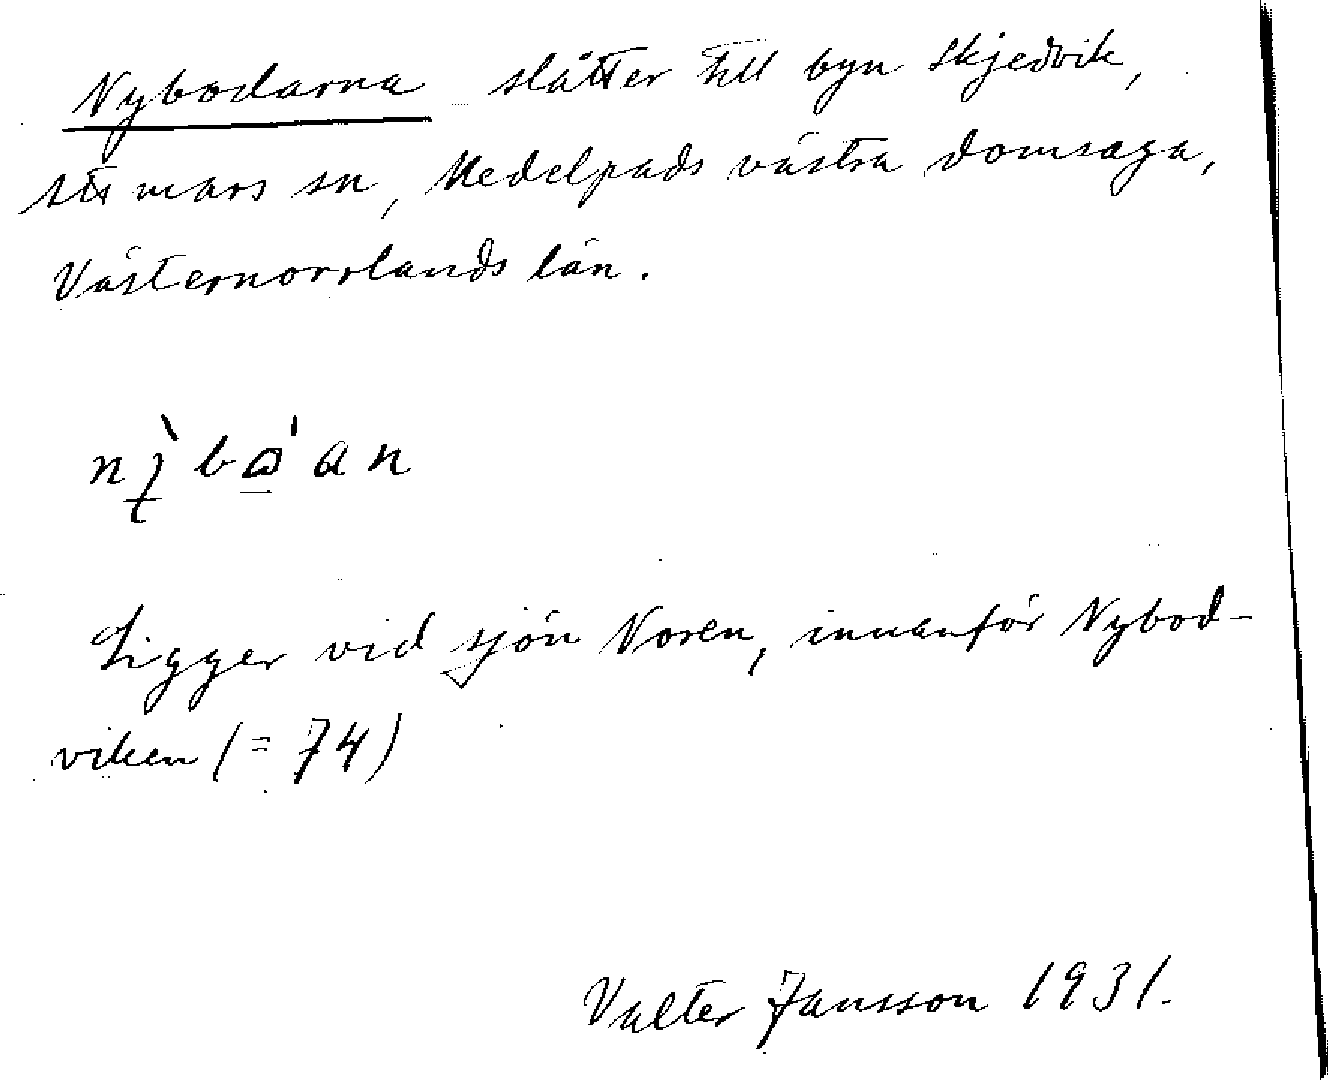 Nybodarna slåtter till byn Skjedvik,
mars sn, Medelpads västra domsaga,
Västernorrlands län.
Ligger vid sjön Noren, innanför Nybod-
viken (= 74)
Valter Jansson 1931.